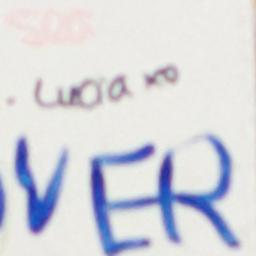 . Lucia xo
VER